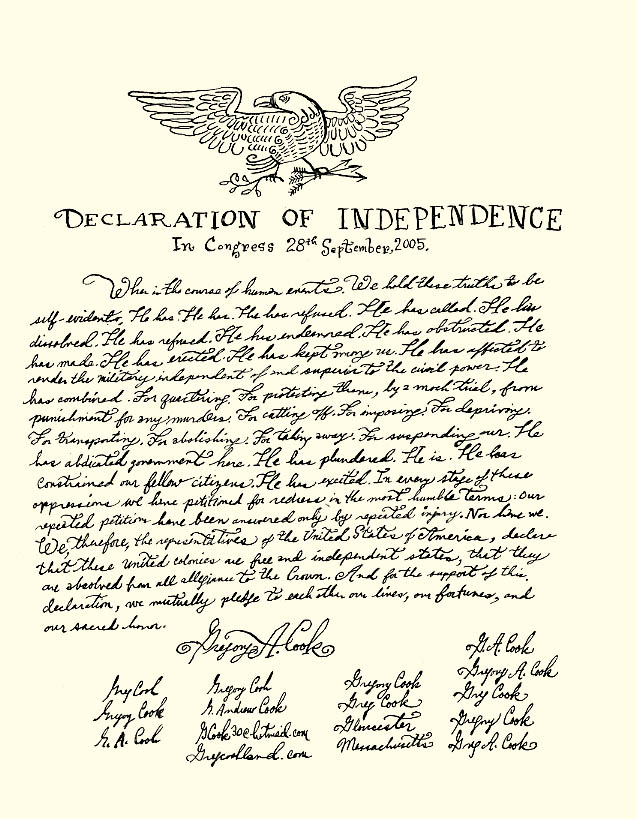 DECLARATION OF INDEPENDENCE
In Congress 28th September, 2005.
When in the course of human events. We hold these truths to be
self-evidents, He has. He has. He has refused. He has called. He has
dissolved. He has refused. He has endeavored. He has obstructed. He
has made. He has erected. He has kept among us. He has affected to
render the military independent of and superior to the civil power. He
has combined. For quartering. For protecting them, by a moch trial, from
punishment for any murders. For cutting off. For imposing. For depriving.
For transporting. For abolishing. For taking away. For suspending our. He
has abdicated government here. He has plundered. He is. He has
constrained our fellow citizens. He has excited. In every stage of these
oppressions we have petitioned for redress in the most humble terms: our
repeated petition have been answered only by repeated injury. Nor have we.
We, therefore, the representatives of the United States of America, declare
that these united colonies are free and independent states, that they
are absolved from all allegiance to the Crown. And for the support of this,
declaration, we mutually pledge to each other our lives, our fortunes, and
our sacred honor.
Gregory A. Cook
Greg Cook
Gregory Cook
G. A. Cook
Gregory Cook
G. Andrew Cook
GCook30@hotmail.com
Gregcookland.com
Gregory Cook
Greg Cook
Gloucester
Massachusetts
G. A. Cook
Gregory A. Cook
Greg Cook
Gregory Cook
Greg A. Cook